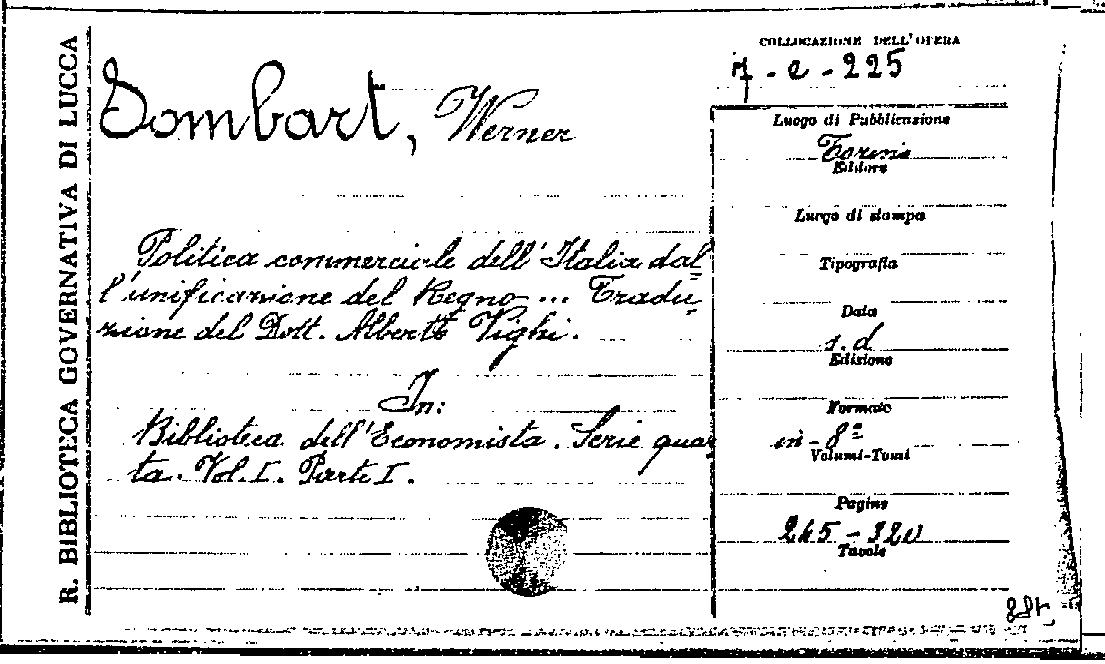 R. BIBLIOTECA GOVERNATIVA DI LUCCA
Sombart, Werner
Politica commerciale dell'Italia dal=
l'unificazione del Regno ... Tradu=
zione del Dott. Alberto Vighi.
In:
Biblioteca dell'Economista. Serie quar
ta. Vol. I. Parte I.
COLLOCAZIONE DELL'OPERA
7 - e - 225
Luogo di Pubblicazione
Torino
Editore
Luogo di stampa
Tipografia
Data
s. d
Edizione
Formato
in - 8º
Volumi-Tomi
Pagine
245 - 320
Tavole